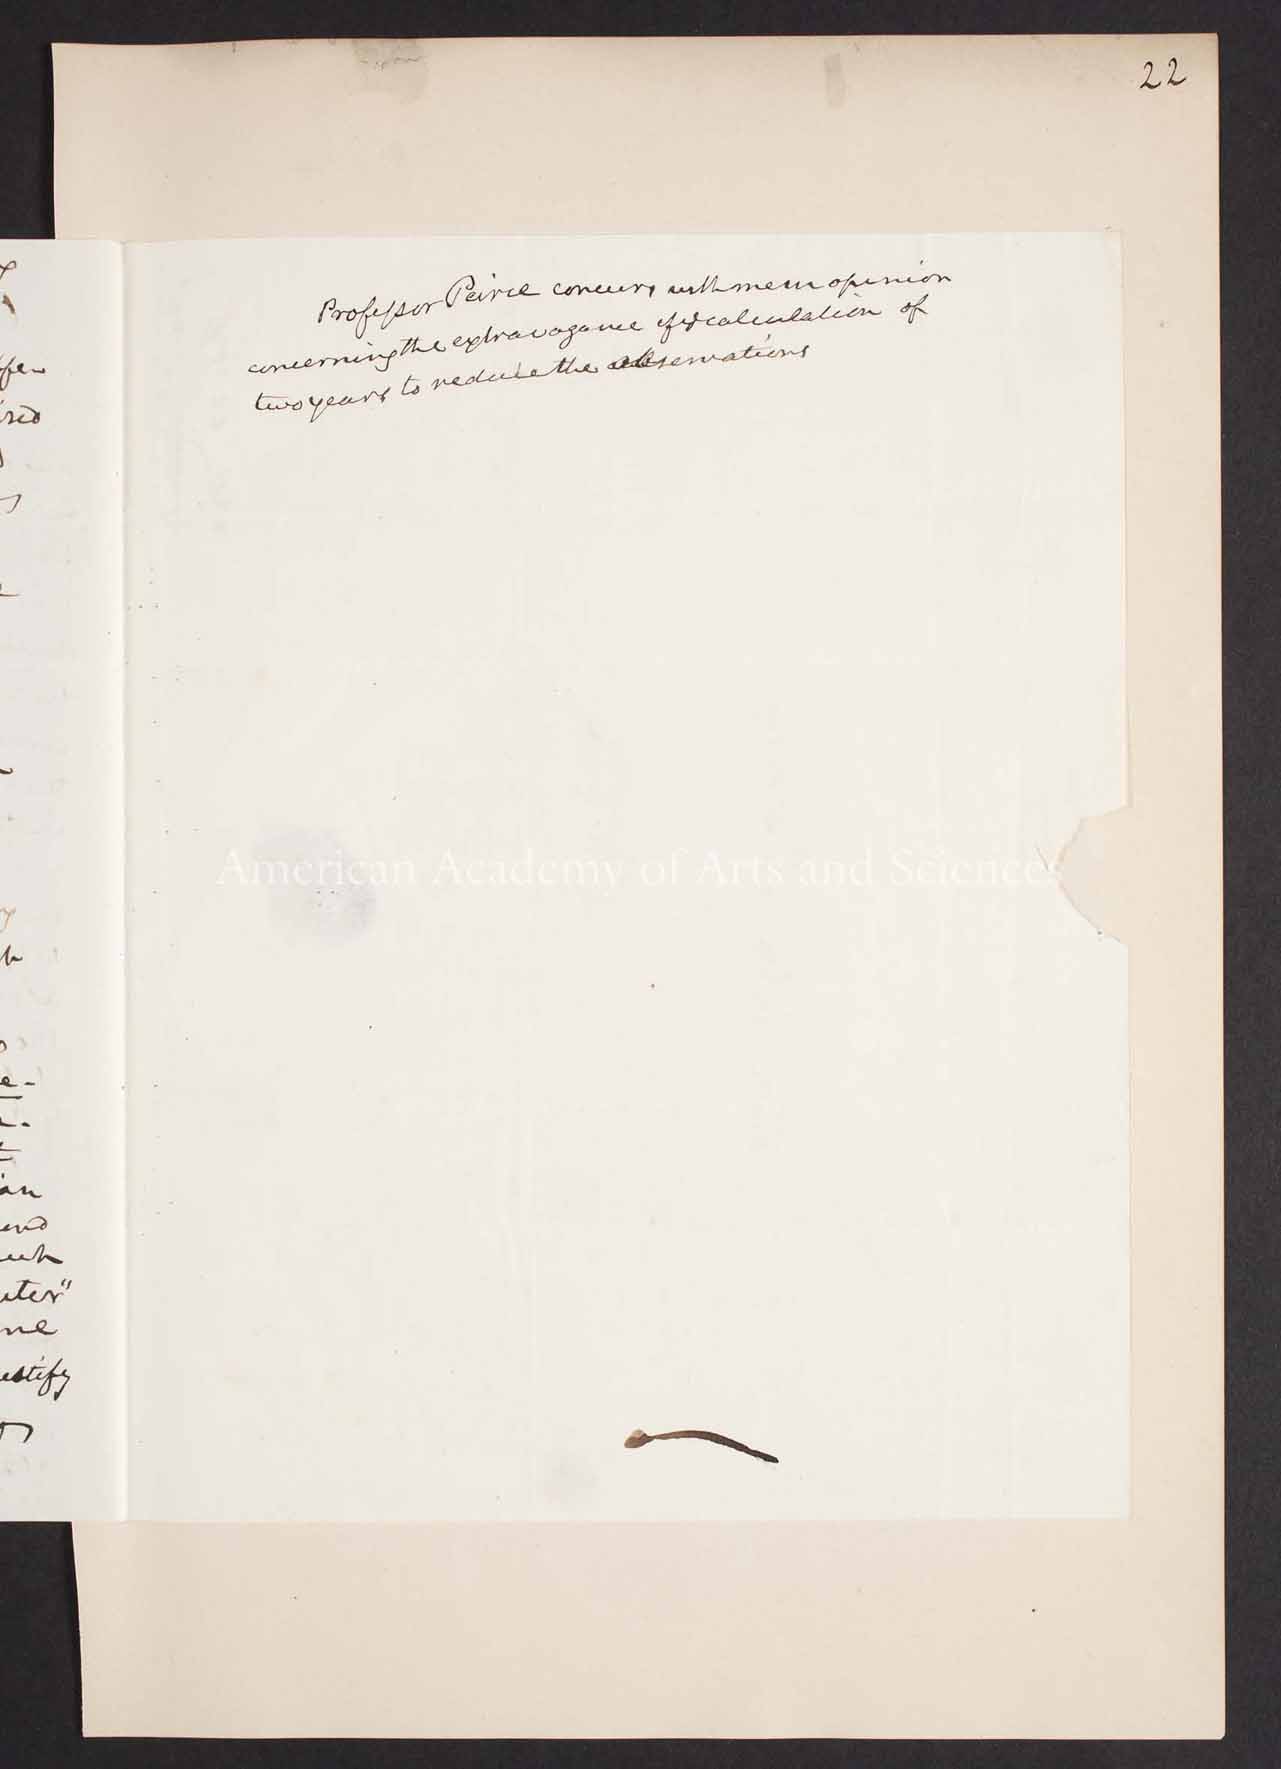 22
Professor Peirce concurs with me in opinion
concerning the extravagance of ye calculation of
two years to reduce the observations
American Academy of Arts and Sciences
ired
e-
an
and
uter"
me
estify